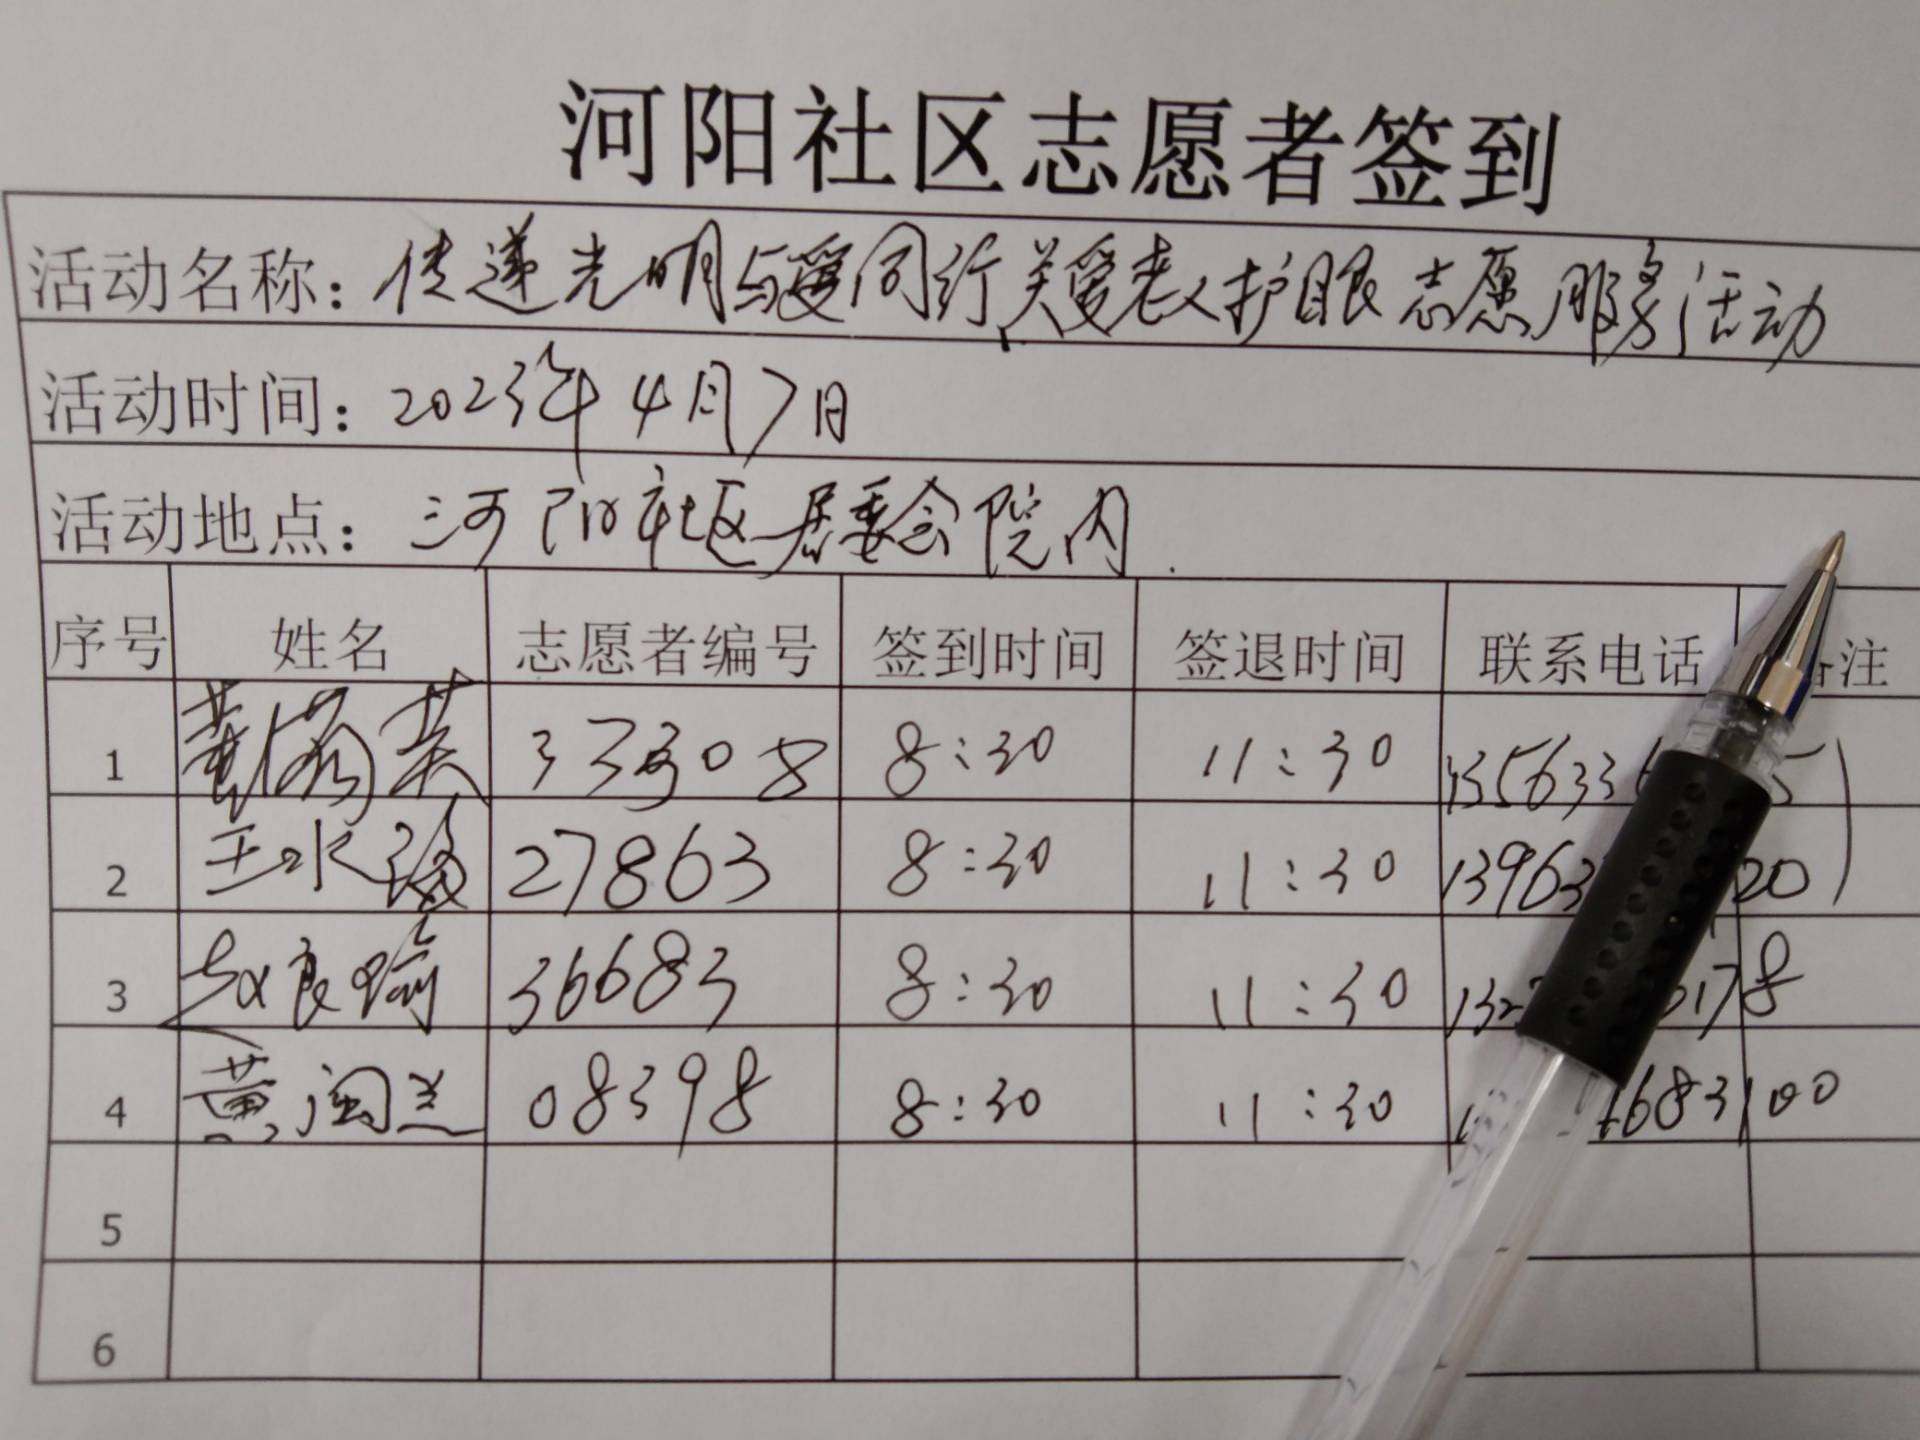 河阳社区志愿者签到
活动名称：传递光明与爱同行关爱老人护眼志愿服务活动
活动时间：2023年4月7日
活动地点：河阳社区居委会院内
序号 姓名 志愿者编号 签到时间 签退时间 联系电话 注
1 33308 8:30 11:30 135633 5
2 王水 27863 8:30 11:30 13963 20
3 赵良喻 36683 8:30 11:30 132 178
4 黄闽兰 08398 8:30 11:30 1 683100
5
6